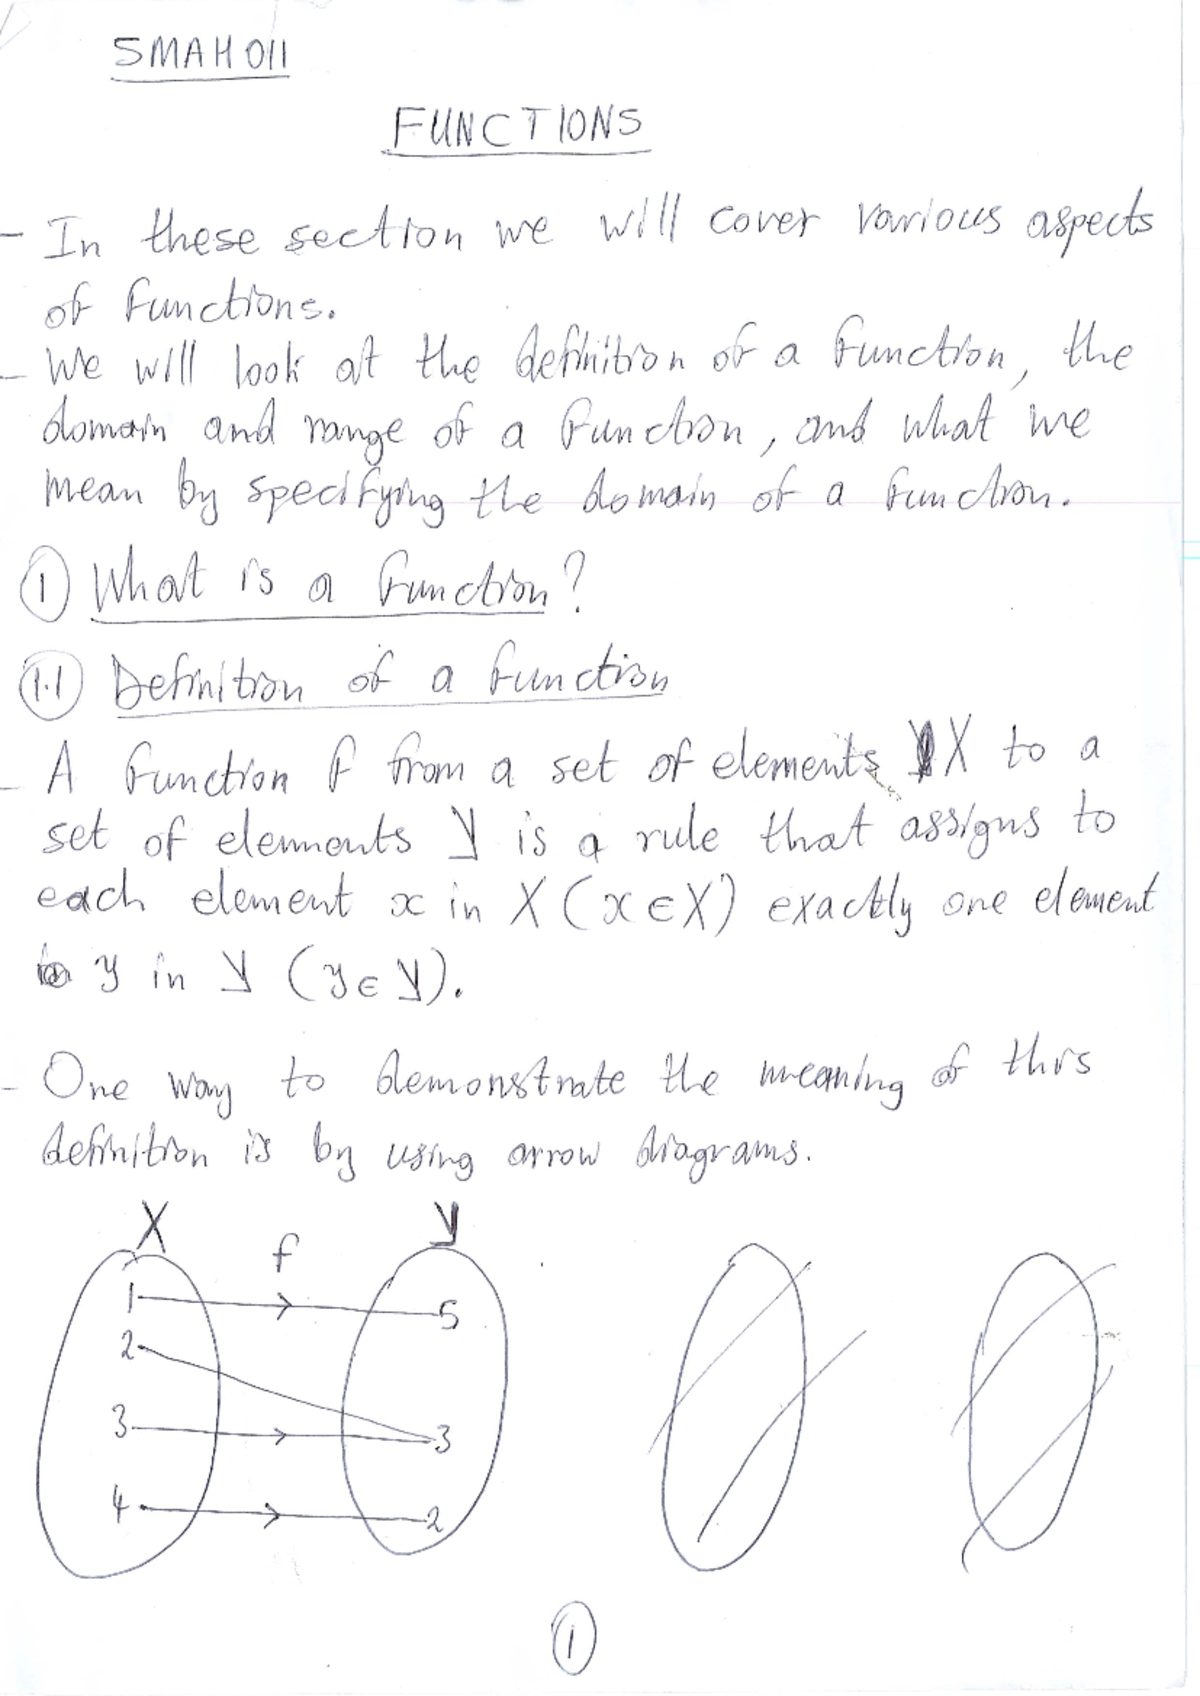 SMAH011
FUNCTIONS
- In these section we will cover various aspects
of functions.
- We will look at the definition of a function, the
domain and range of a function, and what we
mean by specifying the domain of a function.
1 What is a function?
1.1 Definition of a function
- A function f from a set of elements X to a
set of elements Y is a rule that assigns to
each element x in X (x ∈ X) exactly one element
y in Y (y ∈ Y).
- One way to demonstrate the meaning of this
definition is by using arrow diagrams.
X f Y
1 5
2
3 3
4 2
1